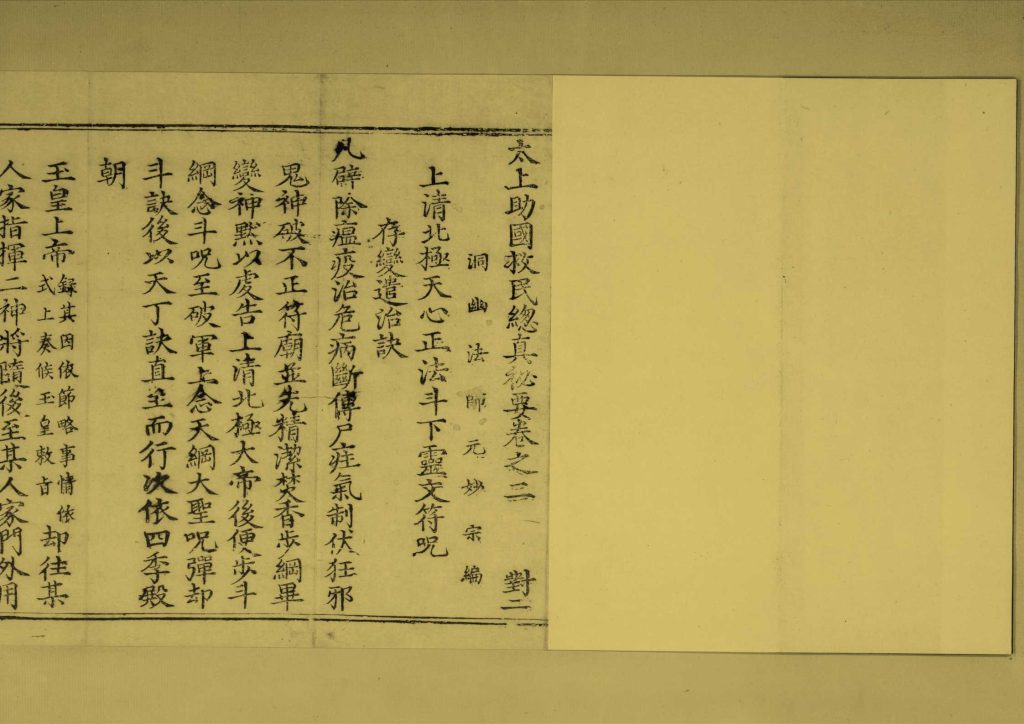 太上助國救民總真秘要卷之二 對二
洞幽法師元妙宗編
上清北極天心正法斗下靈文符呪
存變遣治訣
凡辟除瘟疫治危病斷傳尸疰氣制伏狂邪
鬼神破不正符廟並先精潔焚香步綱畢
變神黙以䖍告上清北極大帝後便步斗
綱念斗呪至破軍上念天綱大聖呪彈却
斗訣後以天丁訣直至而行次依四季殿
朝
玉皇上帝 錄其因依節略事情依 式上奏候玉皇敕旨 却往某
人家指揮二神將隨後至某人家門外用